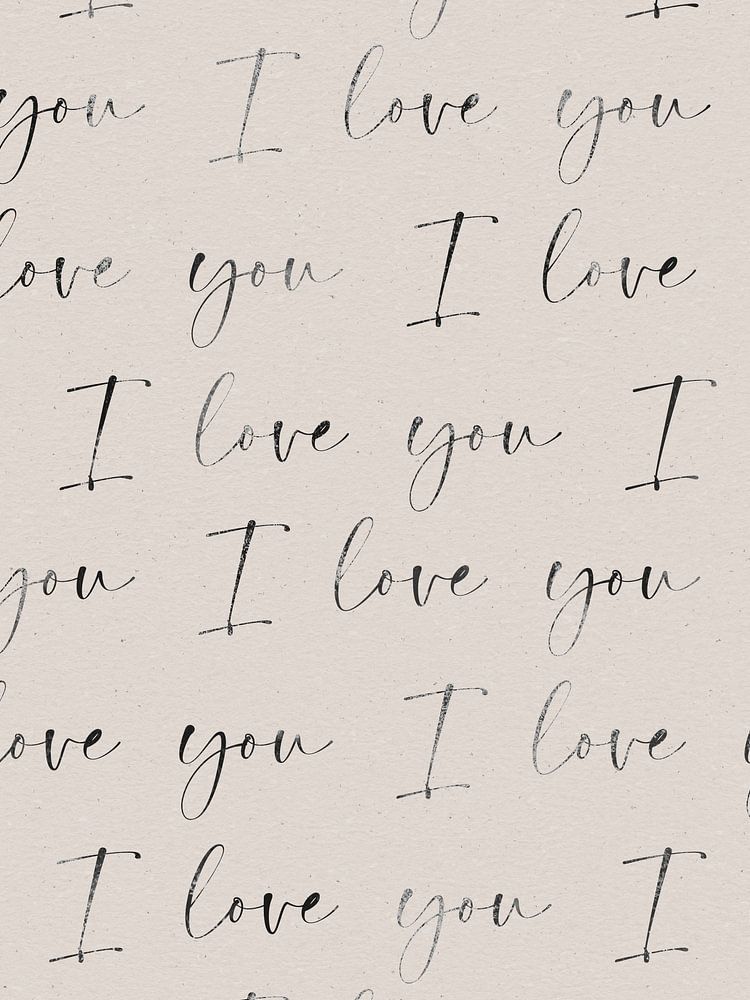 you I love you
love you I love
I love you I
you I love you
love you I love
I love you I